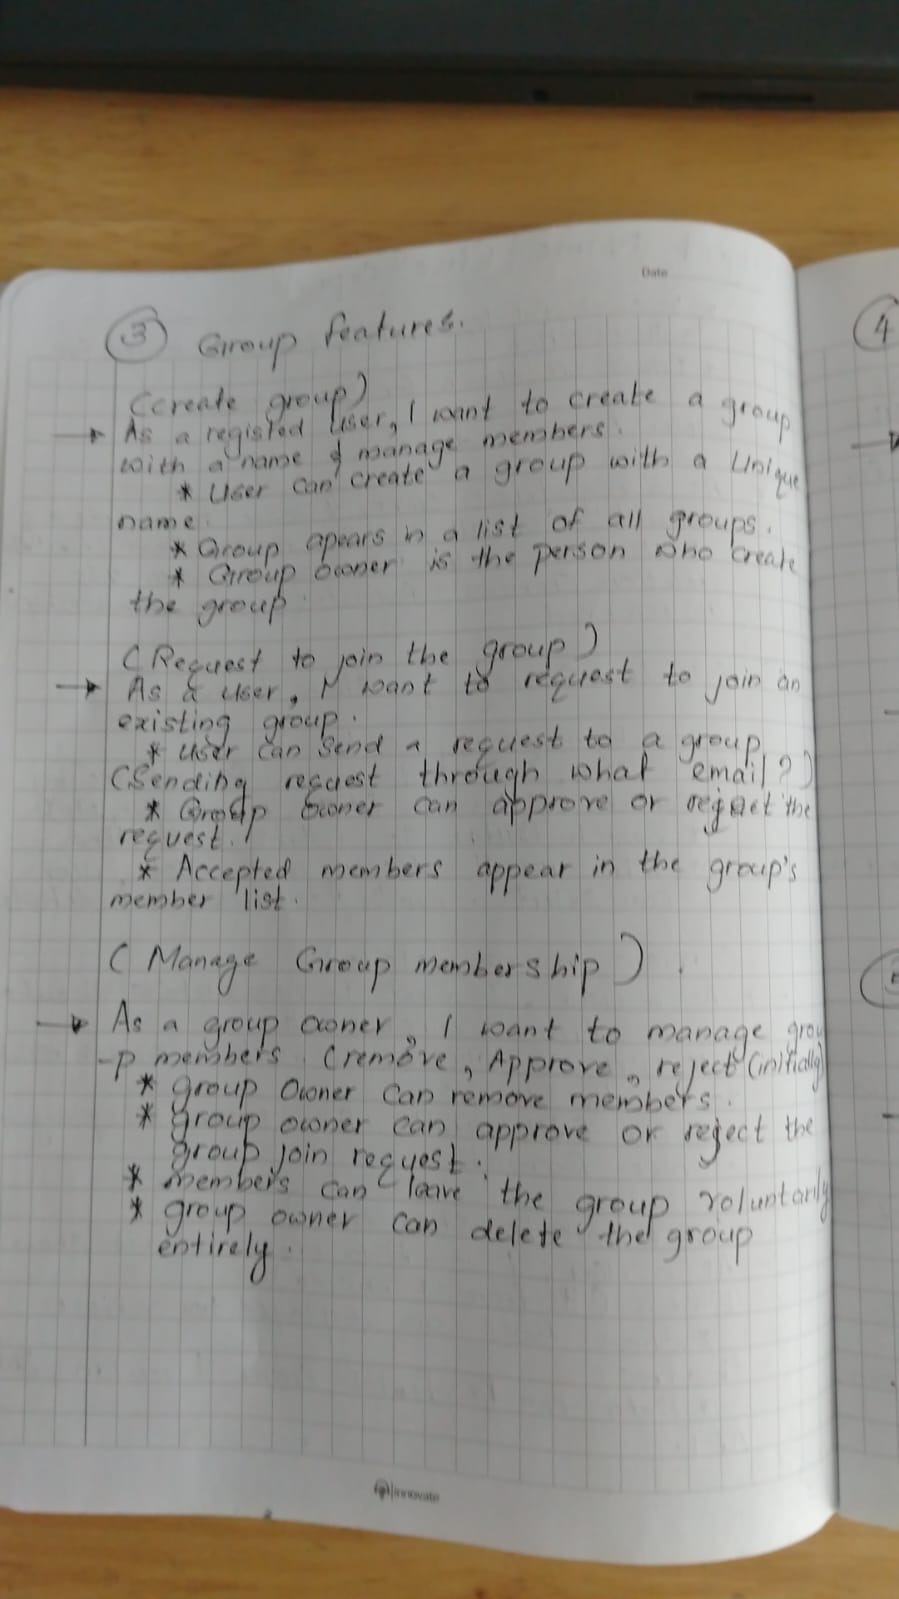 Date
③ Group features.
4
(create group)
→ As a registed user, I want to create a group
with a name & manage members.
* User can create a group with a unique
name.
* Group apears in a list of all groups.
* Group owner is the person who create
the group
(Request to join the group)
→ As a user, I want to request to join an
existing group.
* user can send a request to a group
(Sending request through what email?)
* Group owner can approve or reject the
request.
* Accepted members appear in the group's
member list.
(Manage Group membership).
→ As a group owner, I want to manage grou
-p members (remove, Approve, reject (initially)
* group owner can remove members.
* group owner can approve or reject the
group join request.
* members can leave the group voluntarily
* group owner can delete the group
entirely.
innovate